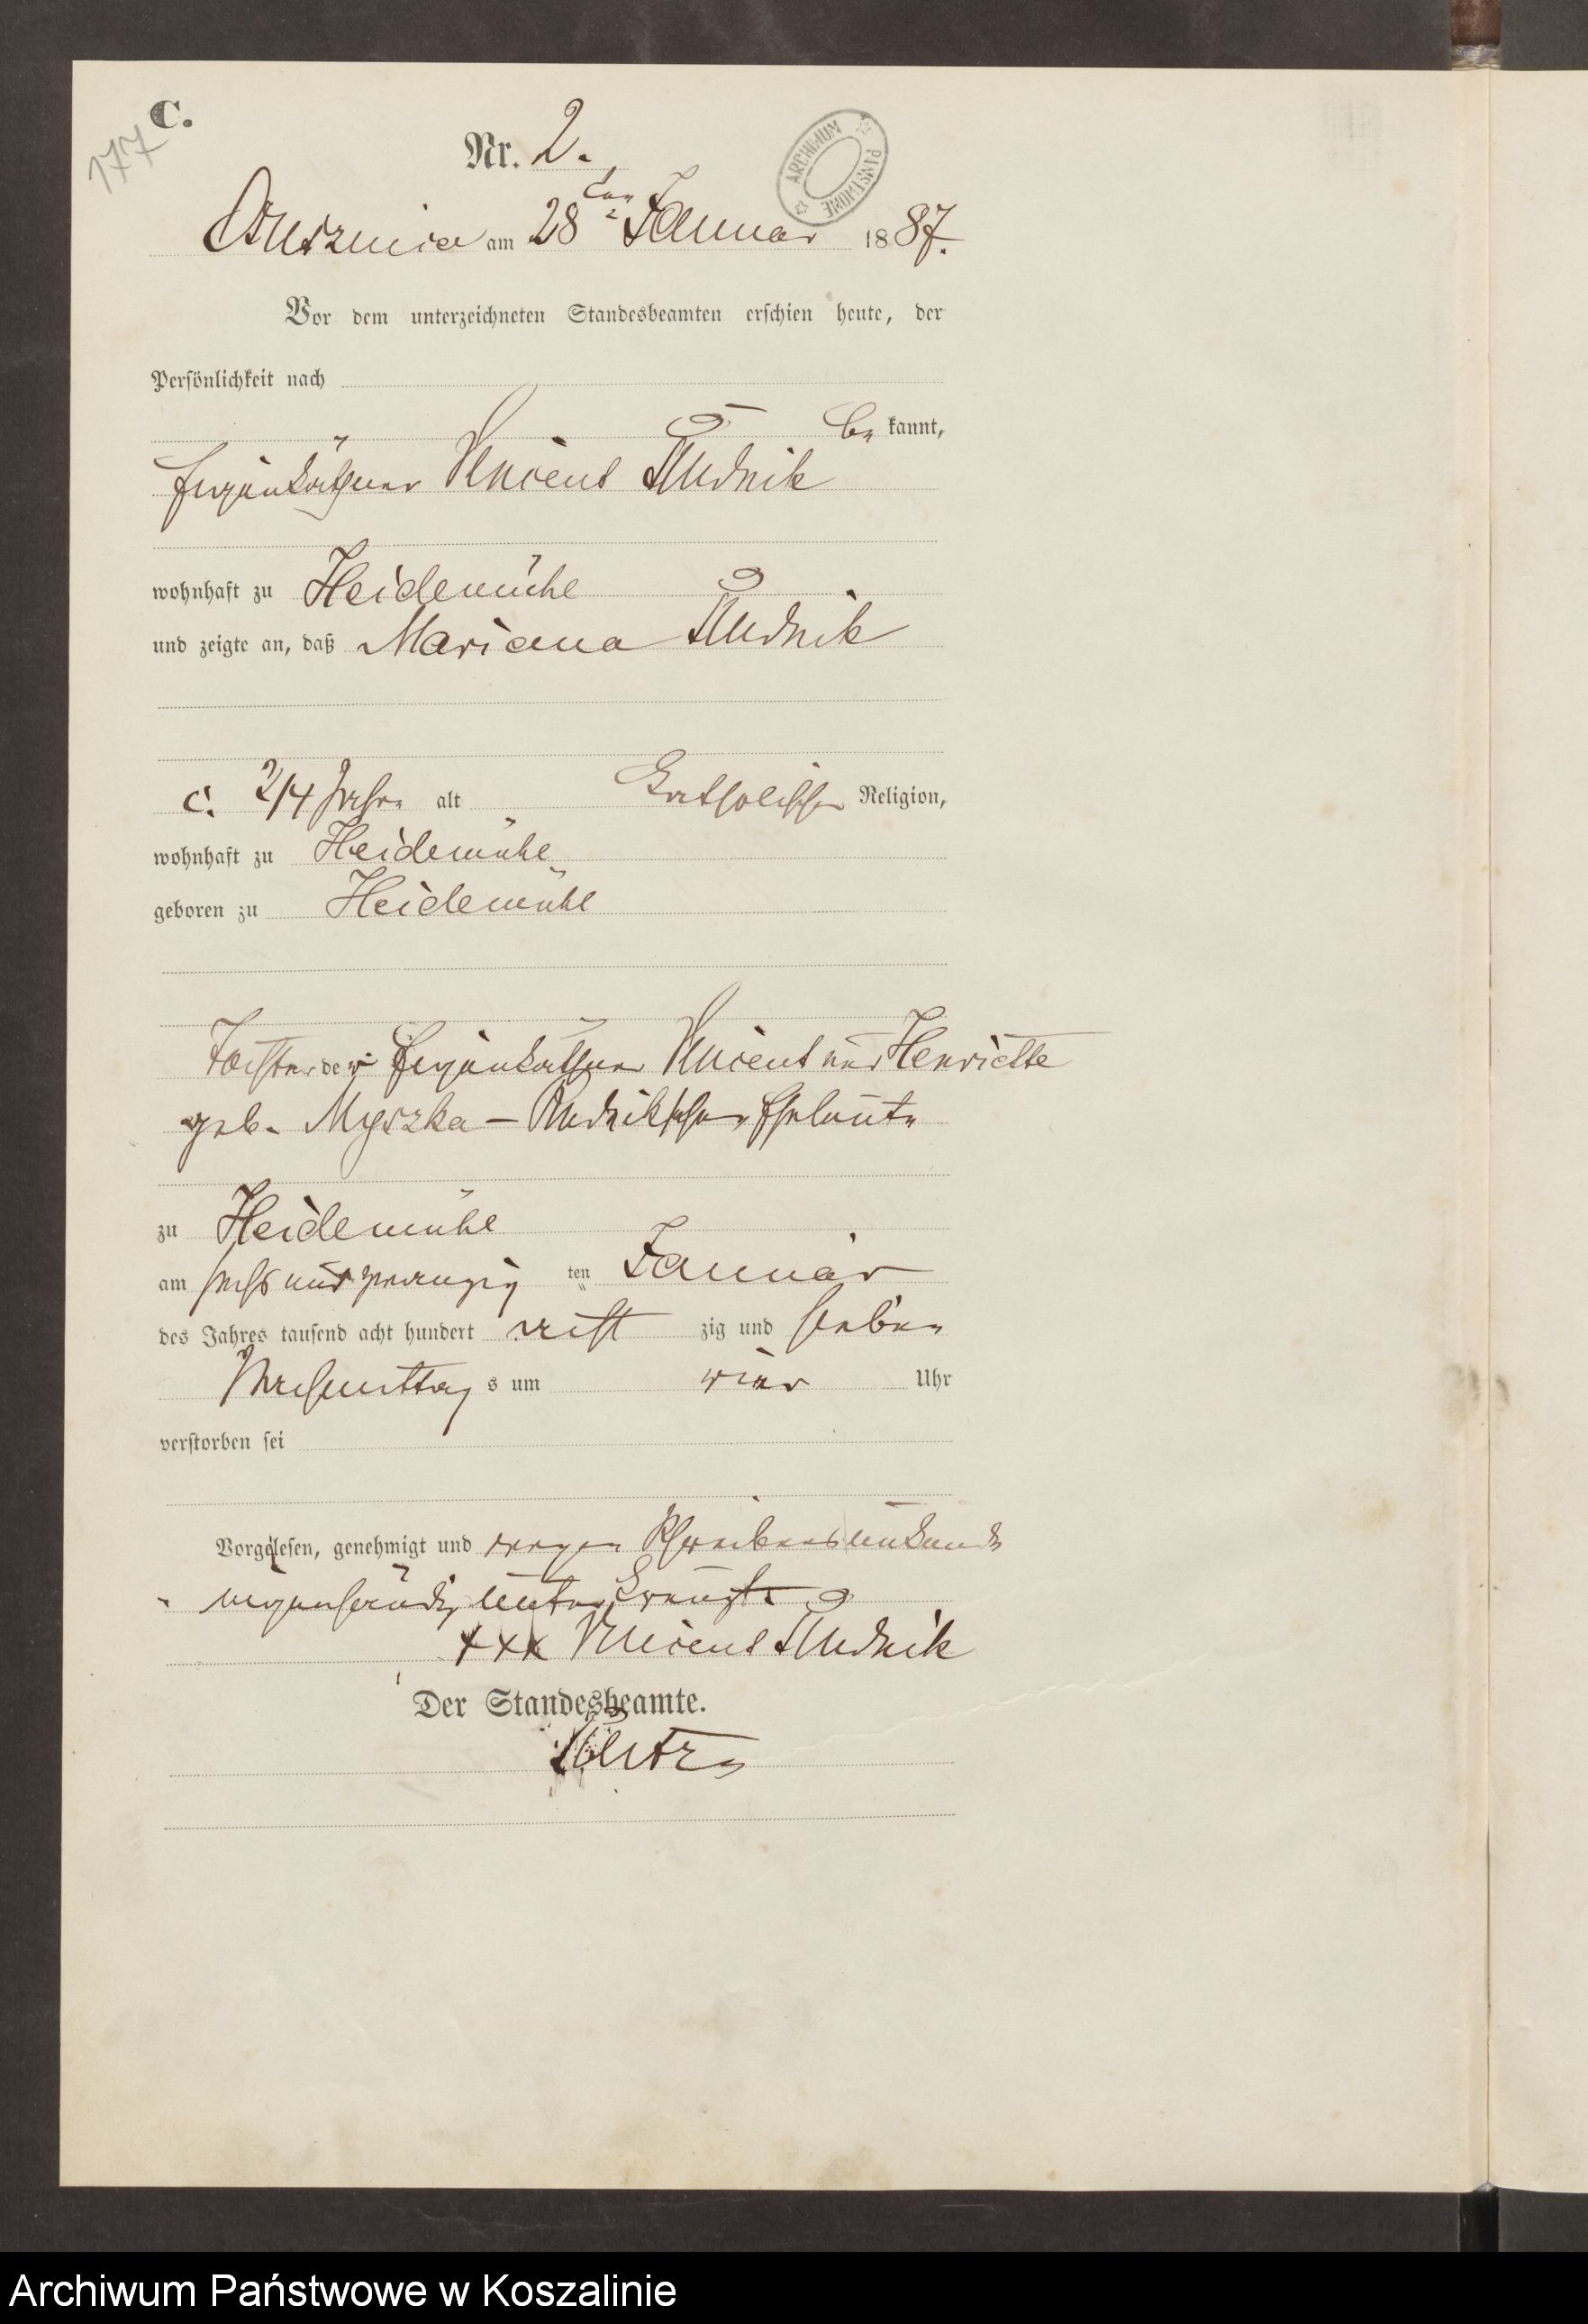 C.
177
Nr. 2.
ARCHIWUM PAŃSTWOWE
am 28ten Januar 1887.
Vor dem unterzeichneten Standesbeamten erschien heute, der
Persönlichkeit nach
be kannt,
Eigenkäthner Vincent Rudnik
wohnhaft zu Heidemühl
und zeigte an, daß Mariana Rudnik
c. 2/4 Jahre alt Katholischer Religion,
wohnhaft zu Heidemühl
geboren zu Heidemühl
Tochter der Eigenkäthner Vincent und Henriette
geb. Myszka – Rudnikschen Eheleute
zu Heidemühl
am sechs und zwanzig ten Januar
des Jahres tausend acht hundert acht zig und sieben
Nachmittag s um vier Uhr
verstorben sei
Vorgelesen, genehmigt und wegen Schreibensunkunde
eigenhändig unterkreuzt
xxx Vincent Rudnik
Der Standesbeamte.
Archiwum Państwowe w Koszalinie